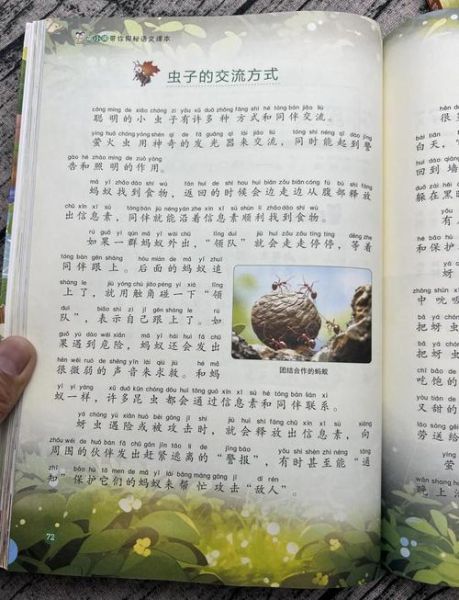 小帅带你探秘语文课本
虫子的交流方式
cōng míng de xiǎo chóng zi yǒu xǔ duō zhǒng fāng shì hé tóng bàn jiāo liú
聪明的小虫子有许多种方式和同伴交流。
yíng huǒ chóng yòng shén qí de fā guāng qì lái jiāo liú tóng shí néng qǐ dào jǐng
萤火虫用神奇的发光器来交流，同时能起到警
gào hé zhào míng de zuò yòng
告和照明的作用。
mǎ yǐ zhǎo dào shí wù fǎn huí de shí hou huì biān zǒu biān cóng fù bù shì fàng
蚂蚁找到食物，返回的时候会边走边从腹部释放
chū xìn xī sù tóng bàn jiù néng yán zhe xìn xī sù shùn lì zhǎo dào shí wù
出信息素，同伴就能沿着信息素顺利找到食物。
rú guǒ yì qún mǎ yǐ wài chū lǐng duì jiù huì zǒu zǒu tíng tíng děng zhe
如果一群蚂蚁外出，“领队”就会走走停停，等着
tóng bàn gēn shàng hòu miàn de mǎ yǐ zhuī
同伴跟上。后面的蚂蚁追
shàng le jiù yòng chù jiǎo pèng yí xià lǐng
上了，就用触角碰一下“领
duì biǎo shì zì jǐ gēn shàng le rú
队”，表示自己跟上了。如
guǒ yù dào wēi xiǎn mǎ yǐ hái huì fā chū
果遇到危险，蚂蚁还会发出
hěn wēi ruò de shēng yīn lái qiú jiù hé mǎ
很微弱的声音来求救。和蚂
yǐ yí yàng xǔ duō kūn chóng dōu huì tōng guò xìn xī sù hé tóng bàn lián xì
蚁一样，许多昆虫都会通过信息素和同伴联系。
yá chóng yù xiǎn huò bèi gōng jī shí jiù huì shì fàng chū xìn xī sù xiàng
蚜虫遇险或被攻击时，就会释放出信息素，向
zhōu wéi de huǒ bàn fā chū gǎn jǐn táo lí de jǐng bào yǒu shí shèn zhì néng tōng
周围的伙伴发出赶紧逃离的“警报”，有时甚至能“通
zhī bǎo hù tā men de mǎ yǐ lái bāng máng gōng jī dí rén
知”保护它们的蚂蚁来帮忙攻击“敌人”。
团结合作的蚂蚁
72
很
bái tiān
白天，
huí dào qiáng
回到墙
duǒ zài hēi àn
躲在黑暗
有
hé bǎo hù
和保护
蚜
中吮吸
bǎ yá chóng
把蚜虫
bǎ yá chóng
把蚜虫
吃饱的
又甜的
láo sòng gěi
劳送给
萤
wǎn shang
晚上